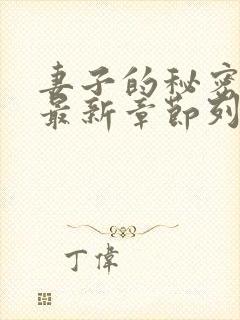 妻子的秘密
最新章節列
丁偉